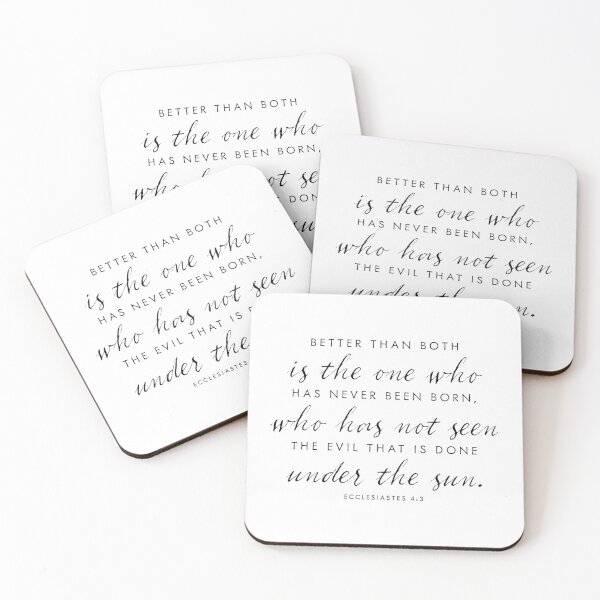 BETTER THAN BOTH
is the one who
HAS NEVER BEEN BORN,
who has not seen
DONE
BETTER THAN BOTH
is the one who
HAS NEVER BEEN BORN,
who has not seen
THE EVIL THAT IS DONE
under the sun.
BETTER THAN BOTH
is the one who
HAS NEVER BEEN BORN,
who has not seen
THE EVIL THAT IS DONE
under the
ECCLESIASTES
BETTER THAN BOTH
is the one who
HAS NEVER BEEN BORN,
who has not seen
THE EVIL THAT IS DONE
under the sun.
ECCLESIASTES 4:3